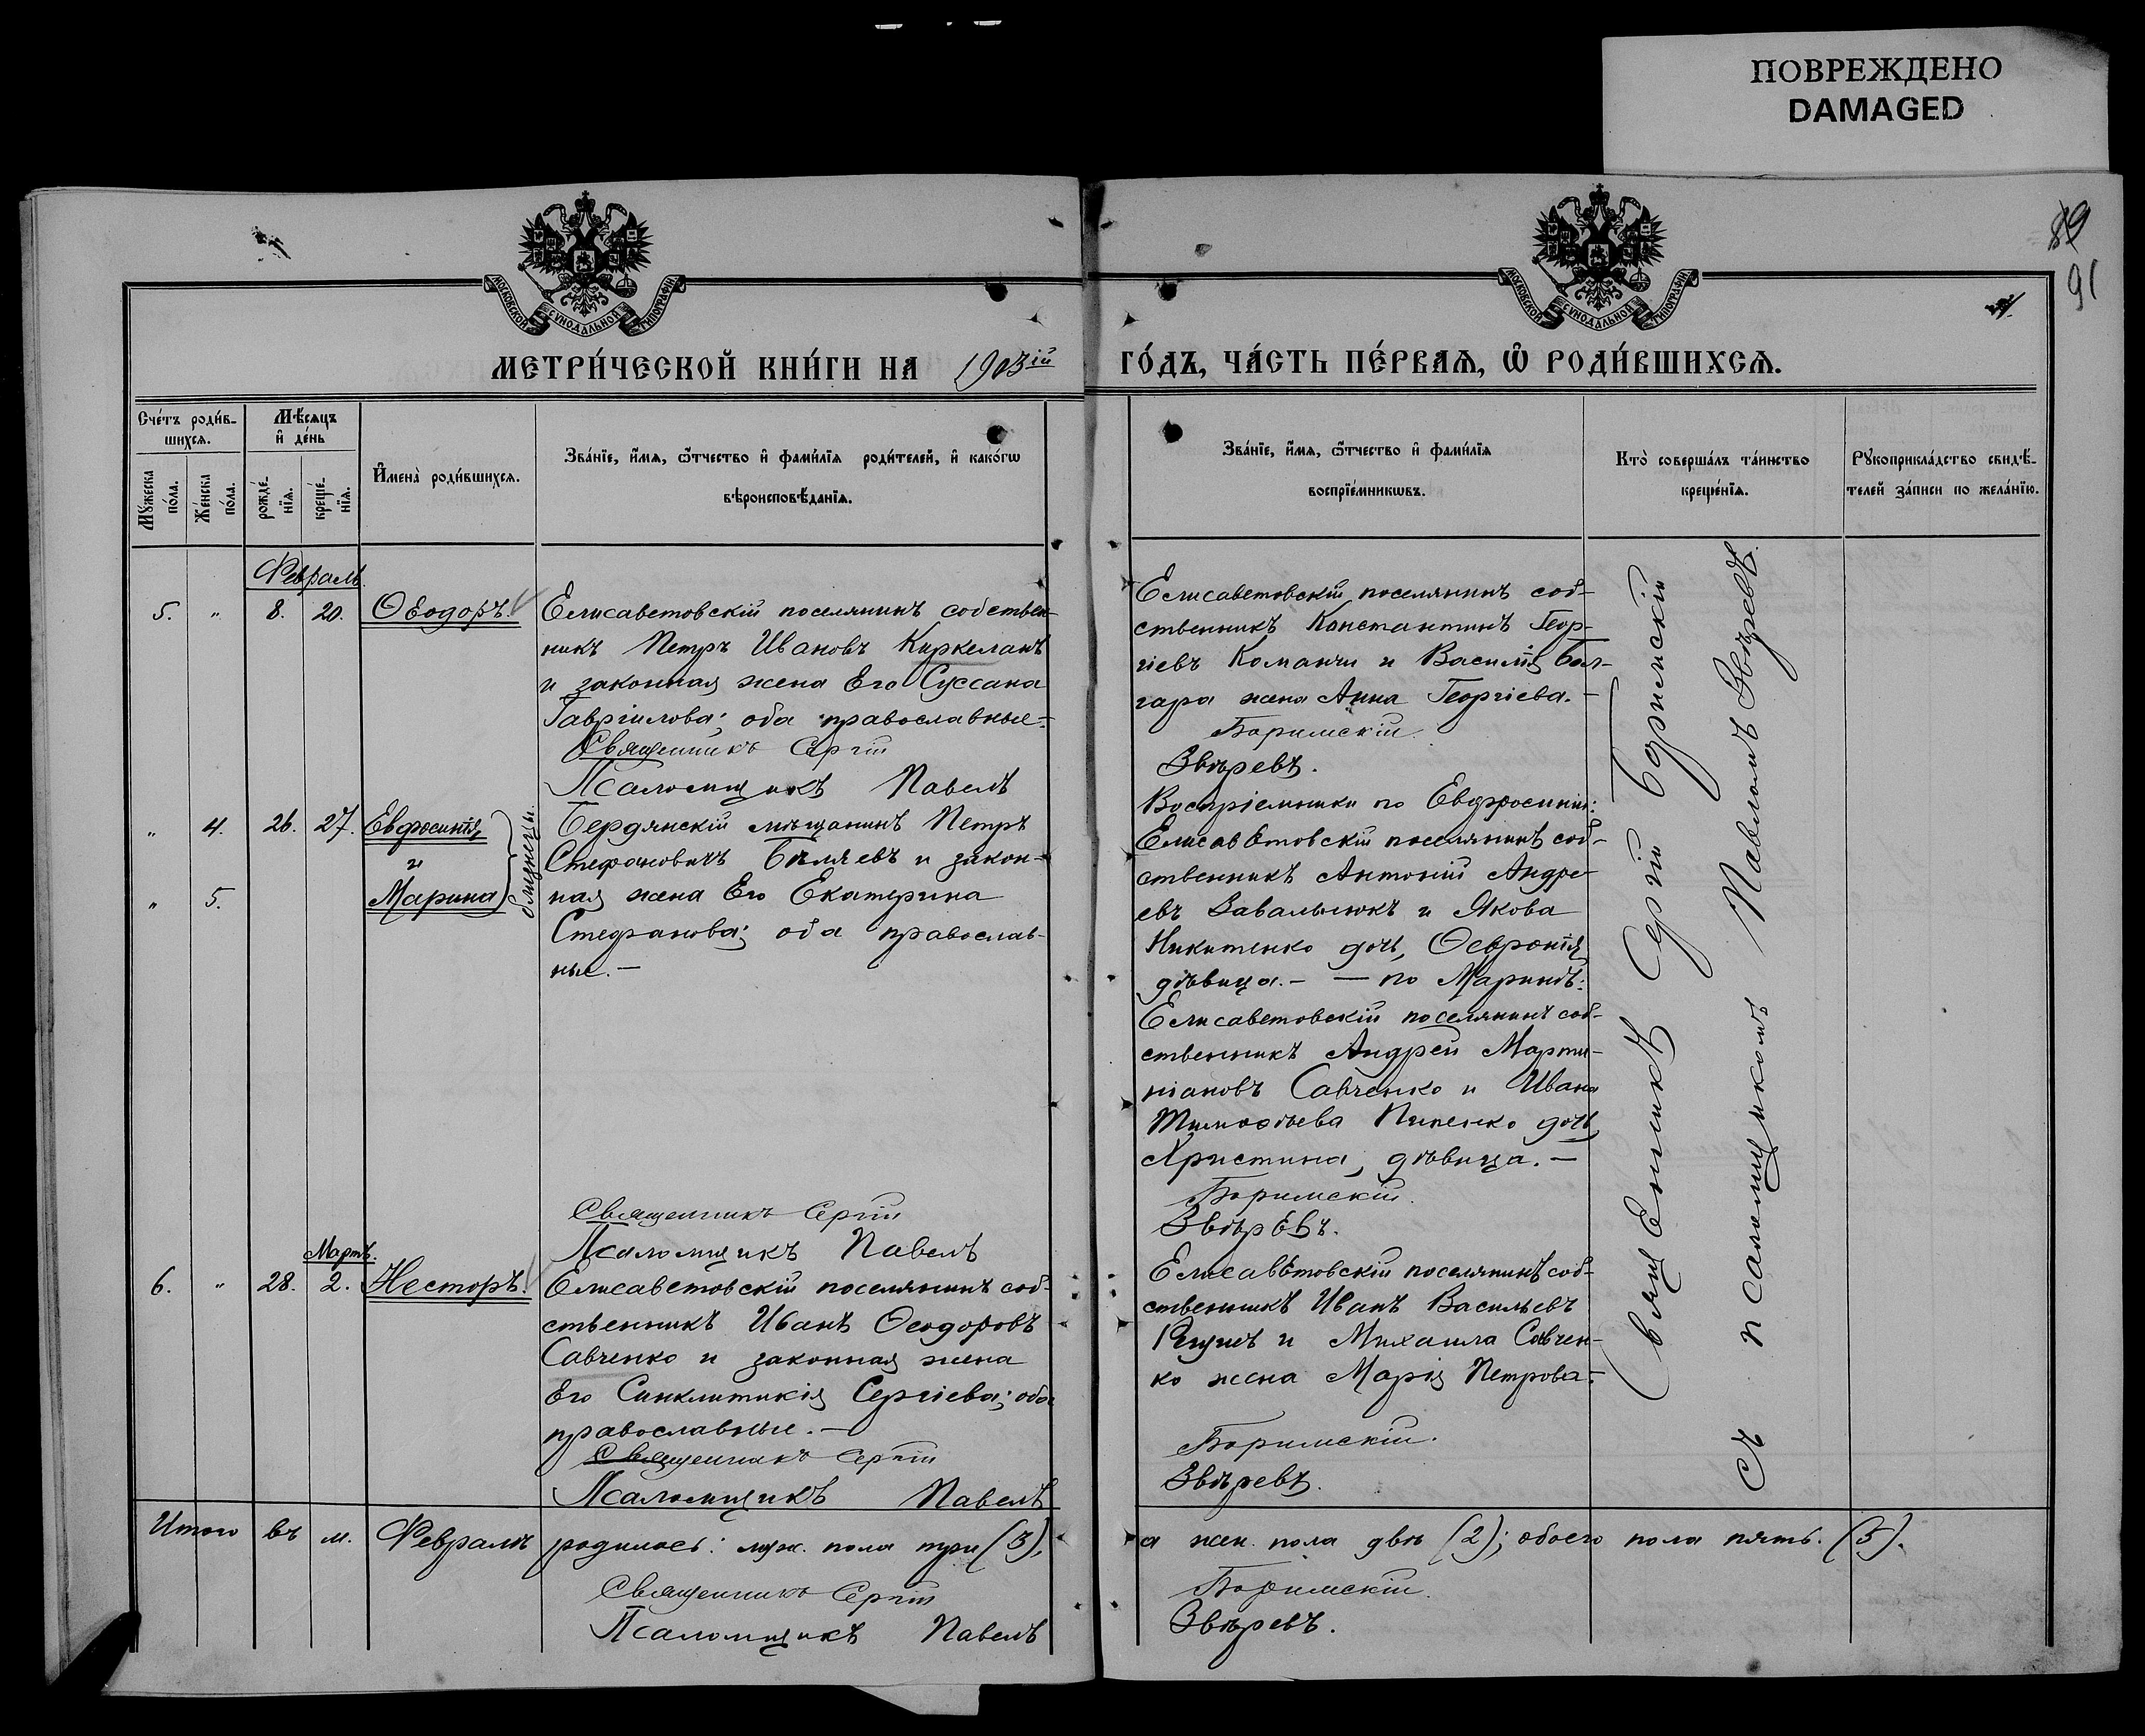 ПОВРЕЖДЕНО
DAMAGED
89
91
МОСКОВСКОЙ СѴНОДАЛЬНОЙ ТИПОГРАФІИ
МОСКОВСКОЙ СѴНОДАЛЬНОЙ ТИПОГРАФІИ
МЕТРИ́ЧЕСКОЙ КНИ́ГИ НА 1903ій ГО́ДЪ, ЧА́СТЬ ПЕ́РВАѦ, Ѽ РОДИ́ВШИХСѦ.
Сче́тъ роди́в-
шихсѧ.
Мꙋжеска по́ла.
Же́нска по́ла.
Мѣ́сѧцъ
и҆ де́нь
рожде́-
нїѧ.
креще́-
нїѧ.
И҆мена̀ роди́вшихсѧ.
Зва́нїе, и҆́мѧ, ѻ҆́тчество и҆ фами́лїѧ роди́телей, и҆ како́гѡ
вѣроисповѣ́данїѧ.
Зва́нїе, и҆́мѧ, ѻ҆́тчество и҆ фами́лїѧ
воспрїе́мникѡвъ.
Кто̀ соверша́лъ та́инство
креще́нїѧ.
Рꙋкоприкла́дство свидѣ́-
телей за́писи по жела́нїю.
Февраль.
5. " 8. 20. Ѳеодоръ.
Елисаветовскій поселянинъ собствен-
никъ Петръ Ивановъ Киркеланъ
и законная жена Его Суссана
Гавріилова; оба православные.-
Священникъ Сергій
Псаломщикъ Павелъ
Елисаветовскій поселянинъ соб-
ственникъ Константинъ Геор-
гіевъ Команчи и Василія Бол-
гара жена Анна Георгіева.-
Боримскій.
Звѣревъ.
" 4. 26. 27. Евфросинія,
и
" 5. Марина
близнецы.
Бердянскій мѣщанинъ Петръ
Стефановичъ Бѣляевъ и закон-
ная жена Его Екатерина
Стефанова; оба православ-
ные.-
Священникъ Сергій
Псаломщикъ Павелъ
Воспріемники по Евфросиніи:
Елисаветовскій поселянинъ соб-
ственникъ Антоній Андре-
евъ Завальнюкъ и Якова
Никитенко дочь, Ѳевронія
дѣвица.- - по Маринѣ:
Елисаветовскій поселянинъ соб-
ственникъ Андрей Марти-
ніановъ Савченко и Ивана
Тимоѳѣева Пипенко дочь
Христина, дѣвица.-
Боримскій.
Звѣревъ.
Мартъ.
6. " 28. 2. Несторъ.
Елисаветовскій поселянинъ соб-
ственникъ Иванъ Ѳеодоровъ
Савченко и законная жена
Его Синклитикія Сергіева; оба
православные.-
Священникъ Сергій
Псаломщикъ Павелъ
Елисаветовскій поселянинъ соб-
ственникъ Иванъ Васильевъ
и Михаила Савчен-
ко жена Марія Петрова.-
Боримскій.
Звѣревъ.
Священникъ Сергій Боримскій
съ псаломщикомъ Павломъ Звѣревъ.
Итого въ м. Февралѣ родилось: муж. пола три (3), а жен. пола двѣ (2); обоего пола пять. (5).
Священникъ Сергій Боримскій.
Псаломщикъ Павелъ Звѣревъ.